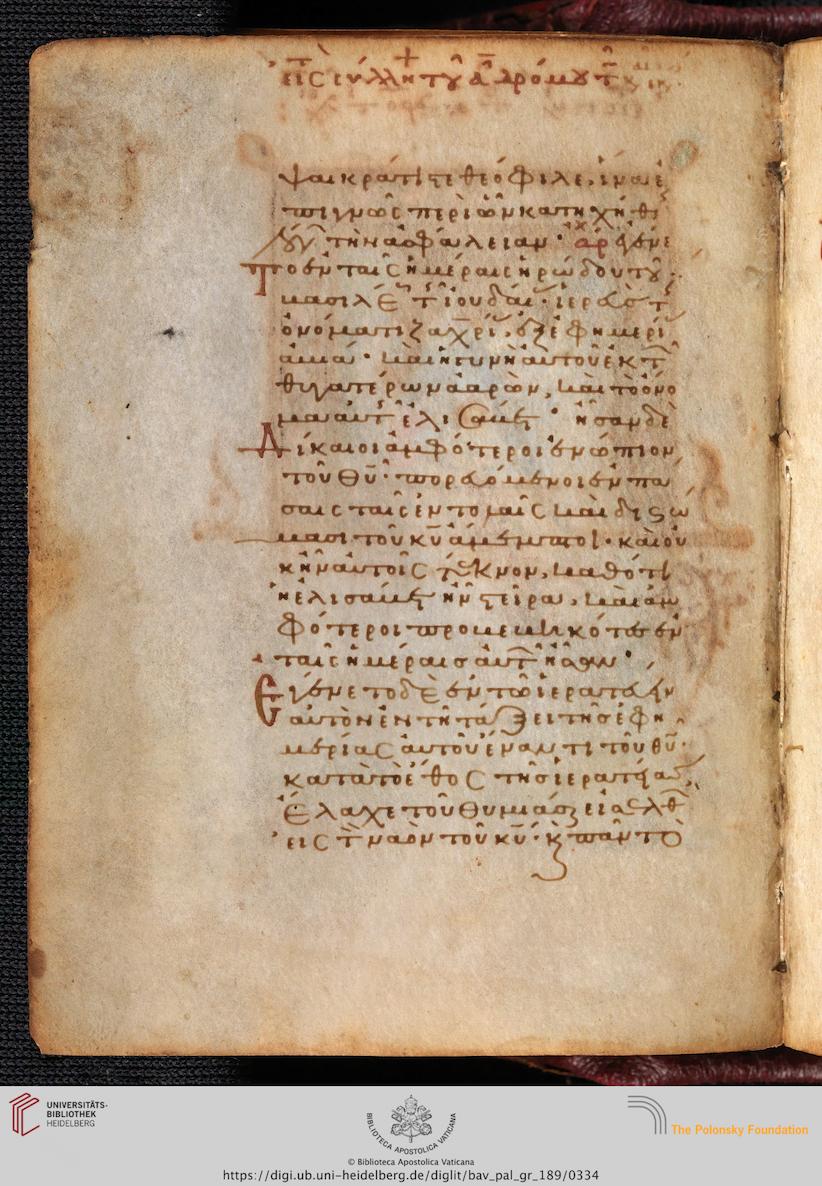 εἰς τ συλλη τοῦ ἁ προδρόμου
ψαι κράτιστε θεόφιλε. ἵνα ἐ
πιγνῶς περὶ ὧν κατηχήθ
τὴν ἀσφάλειαν· αρχ
ἐγένε
το ἐν ταῖς ἡμέραις ἡρώδου τοῦ
βασιλε τ ἰουδαι· ἱερεύς τ
ὀνόματι ζαχρι. ἐξ ἐφημερί
ἀβιά· καὶ ἡ γυνὴ αὐτοῦ ἐκ τ
θυγατέρων ἀαρών, καὶ τὸ ὄνο
μα αὐτ ἐλισάβετ· ἦσαν δὲ
Δίκαιοι ἀμφότεροι ἐνώπιον
τοῦ θυ· πορευόμενοι ἐν πά
σαις ταῖς ἐντολαῖς καὶ δικαιώ
μασι τοῦ κυ ἄμεμπτοι· καὶ οὐ
κ ἦν αὐτοῖς τέκνον, καθότι
ἡ ἐλισάβετ ἦν στεῖρα, καὶ ἀμ
φότεροι προβεβηκότες ἐν
ταῖς ἡμέραις αὐτ ἦσαν·
Ἐγένετο δὲ ἐν τῷ ἱερατεύειν
αὐτὸν ἐν τῇ τάξει τῆς ἐφη
μερίας αὐτοῦ ἔναντι τοῦ θυ·
κατὰ τὸ ἔθος τῆς ἱερατείας
Ἔλαχε τοῦ θυμιάσαι εἰσελθ
εἰς τ ναὸν τοῦ κυ· κ πᾶν τὸ
UNIVERSITÄTS-
BIBLIOTHEK
HEIDELBERG
BIBLIOTECA APOSTOLICA VATICANA
The Polonsky Foundation
© Biblioteca Apostolica Vaticana
https://digi.ub.uni-heidelberg.de/diglit/bav_pal_gr_189/0334